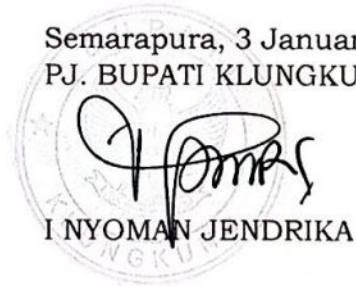 Semarapura, 3 Januar
PJ. BUPATI KLUNGKU
I NYOMAN JENDRIKA